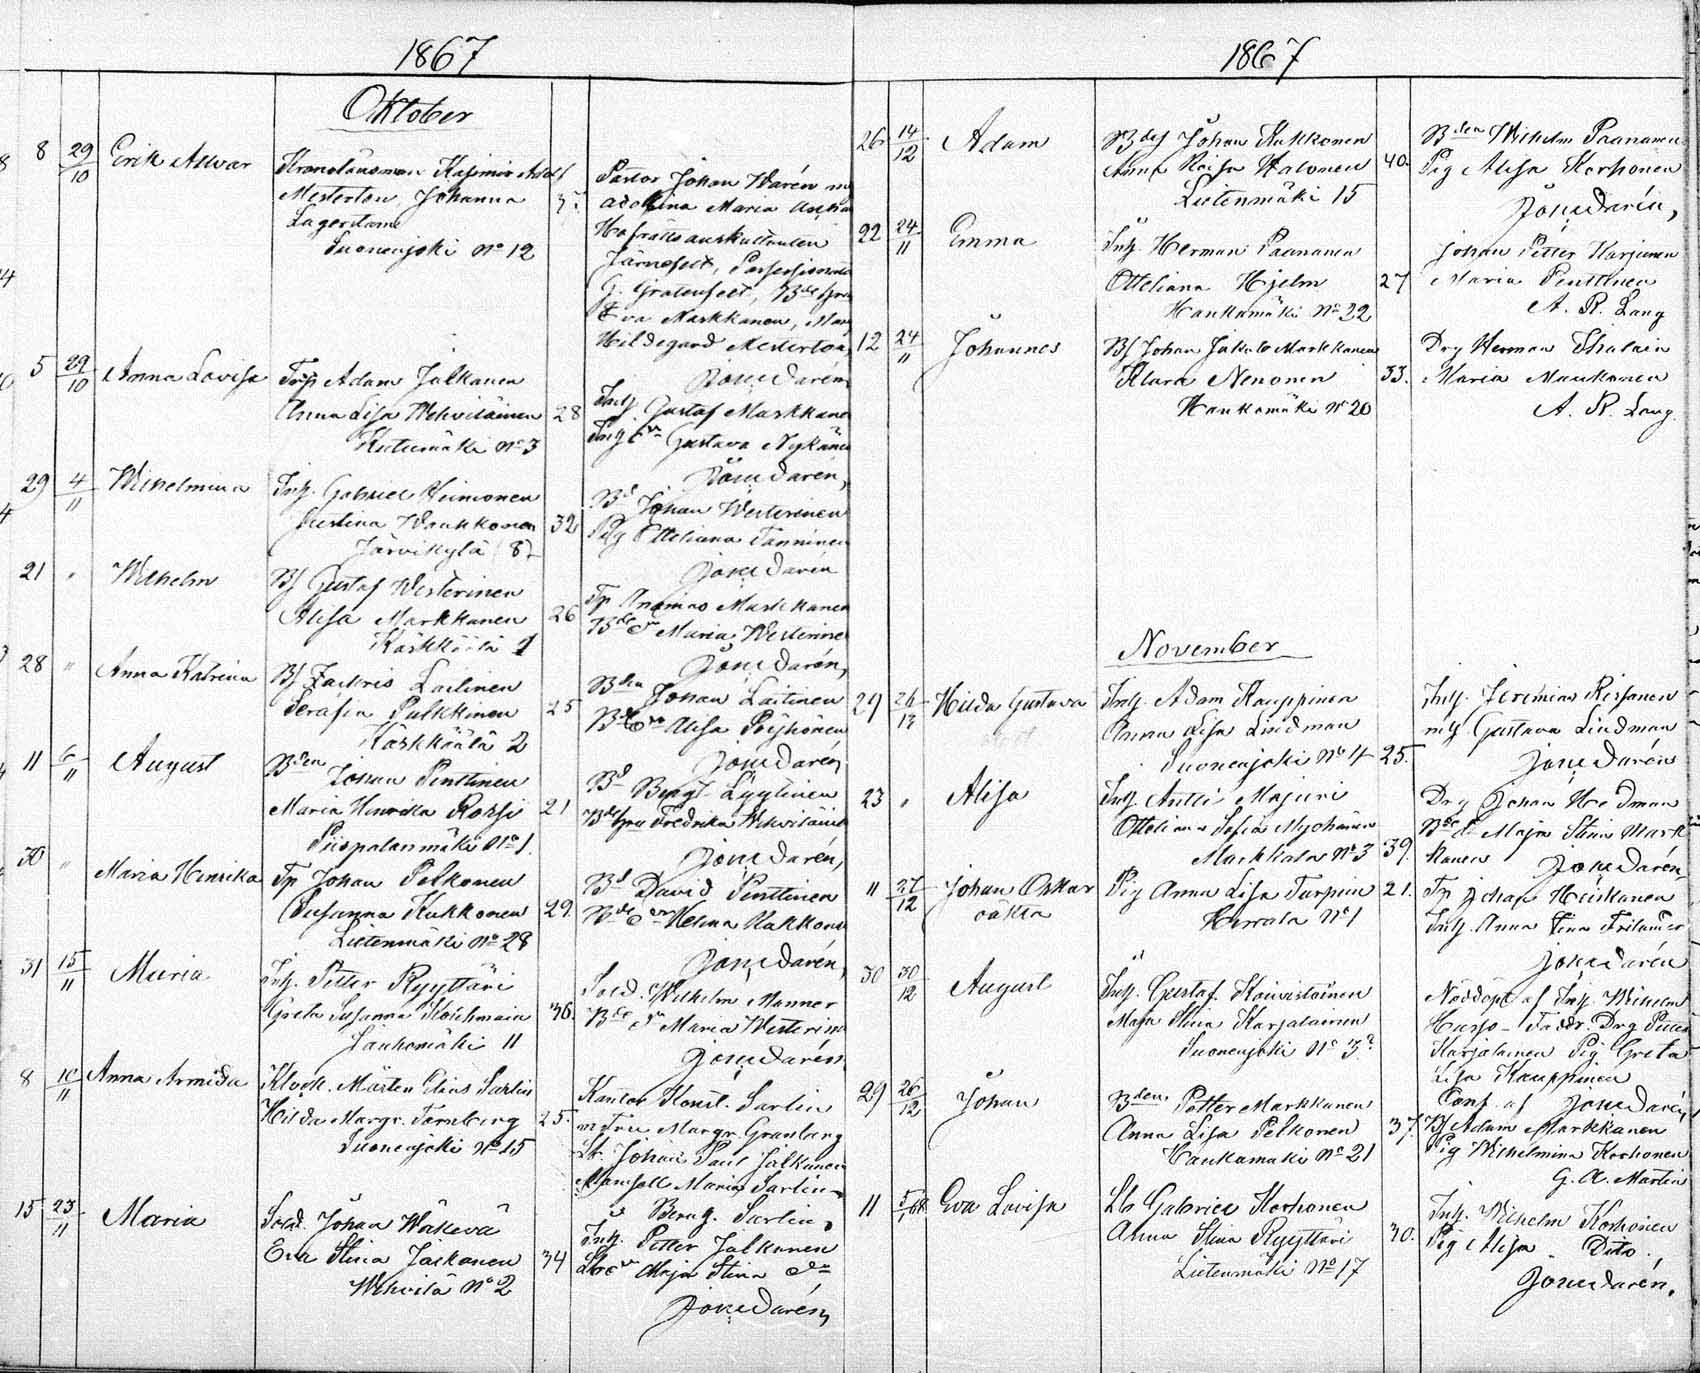 1867
Oktober
8 29/10 Erik Alwar
Kronolänsman Kasimir Adolf
Mesterton, Johanna
Lagerstam
Suonenjoki No 12
Pastor Johan Warén
Adolfina Maria
Hofrätts auskultanten
Järnefelt,
G. Gratenfelt,
Eva Markkanen,
Hildegard Mesterton
5 29/10 Anna Lovisa
Adam Jalkanen
Anna Lisa Wehviläinen 28
Kutumäki No 3
Jone Darén
Inh. Gustaf Markkanen
Gustava Nykänen
29 4/11 Wilhelmina
Inh. Gabriel Hiimonen
Justina Waukkonen 32
Järvikylä 8
Jone Darén,
Bd Johan Westerinen
Pig Otteliana Tanninen
21 " Wilhelm
Bs Gustaf Westerinen
Alisa Markkanen 26
Kärkkäälä 1
Jone Darén
Tp Anainas Markkanen
Maria Westerinen
28 " Anna Katrina
Bs Zachris Laitinen
Serafia Pulkkinen 25
Karkkäälä 2
Jone Darén,
Bden Johan Laitinen
Alisa Pöyhönen
11 6/11 August
Bden Johan Penttinen
Maria Henrika Rossi 21
Piispalanmäki No 1.
Jone Darén
Bd Bengt Lyytinen
Fredrika Wehviläinen
30 " Maria Henrika
Tp Johan Pelkonen
Susanna Kukkonen 29.
Lietenmäki No 28
Jone Darén,
Bd David Penttinen
Helena Kakkonen
31 15/11 Maria
Inh. Petter Ryyttäri
Greta Susanna Koichmain 36.
Jauhomäki 11
Jone Darén,
Sold. Wilhelm Manner
Maria Westerinen
Jone Darén
8 10/11 Anna Armida
Klock. Mårten Elias Sarlin
Hilda Margr. Fornberg 25.
Suonenjoki No 15
Kantor Konst. Sarlin
Fru Margr. Granberg
Johan Paul Jalkanen
Mamsell Maria Sarlin
o Beng. Sarlin,
15 23/11 Maria
Sold. Johan Wäkevä
Eva Stina Jalkanen 34
Wehvilä No 2
Inh. Petter Jalkanen
Maja Stina do
Jone Darén,
1867
26 14/12 Adam
Bdes Johan Kukkonen
Anna Kaisa Halonen 40.
Lietenmäki 15
Bden Wilhelm Paananen
Pig Alisa Korhonen
Jone Darén,
22 24/11 Emma
Inh. Herman Paananen
Otteliana Hjelm 27
Haukamäki No 22
Johan Petter Karjunen
Maria Penttinen
A. R. Lang
12 24/11 Johannes
Bs Johan Jakob Markkanen
Klara Nenonen 33.
Haukamäki No 20
Drg Herman Thalain
Maria Maukonen
A. R. Lang.
November
29 26/12 Hilda Gustava
Inh. Adam Kauppinen
Anna Lisa Lindman
Suonenjoki No 4 25.
Inh. Jeremias Rissanen
Gustava Lindman
Jone Darén
23 " Alisa
Inh. Antti Majuri
Otteliana Sofia Myöhänen
Markkala No 3 39.
Drg Johan Hedman
Maja Stina Mark
kanen Jone Darén
11 27/12 Johan Oskar
oäkta
Pig Anna Lisa Turpein 21.
Herrala No 1
Tp Johan Heiskanen
Inh. Anna Tina
Jone Darén
30 30/12 August
Inh. Gustaf Koivistoinen
Maja Stina Karjalainen
Suonenjoki No 3
Nöddöpt af Inh. Wilhelm
Husso - Faddr. Drg Petter
Karjalainen Pig Greta
Lisa Kauppinen
Conf. af Jone Darén
29 26/12 Johan
Bden Petter Markkanen
Anna Lisa Pelkonen 37.
Haukamäki No 21
Bs Adam Markkanen
Pig Wilhelmina Korhonen
G. A. Martin
11 5/1 68 Eva Lovisa
Lb Gabriel Korhonen
Anna Stina Ryyttäri 30.
Lietenmäki No 17
Inh. Wilhelm Korhonen
Pig Alisa Dito.
Jone Darén.